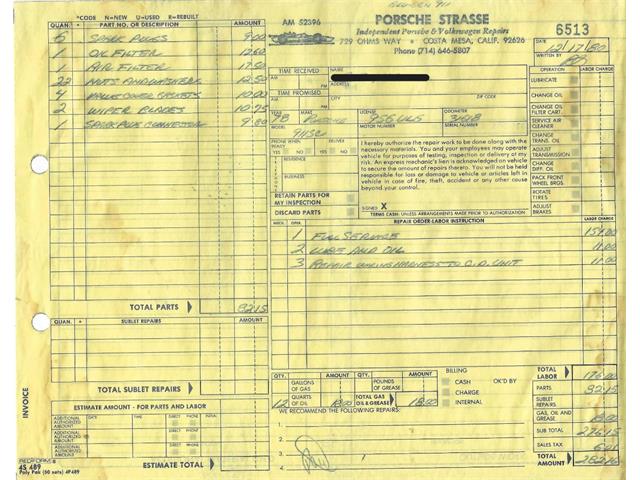 *CODE N=NEW U=USED R=REBUILT
QUAN. * PART NO. OR DESCRIPTION AMOUNT
6 SPARK PLUGS 9.00
1 OIL FILTER
1 AIR FILTER 17.50
22 NUTS AND WASHERS 12.50
4 VALVE COVER GASKETS 10.00
2 WIPER BLADES 10.95
1 SPARK PLUG CONNECTOR 9.80
TOTAL PARTS 82.15
QUAN. * SUBLET REPAIRS AMOUNT
TOTAL SUBLET REPAIRS
ESTIMATE AMOUNT - FOR PARTS AND LABOR
ADDITIONAL AUTHORIZED AMOUNT DIRECT PHONE DIRECT PHONE
ADDITIONAL AUTHORIZED AMOUNT DIRECT PHONE DIRECT PHONE
ESTIMATE TOTAL
INVOICE
REDIFORM®
4S 489
Poly Pak (50 sets) 4P489
AM 52396
PORSCHE STRASSE
Independent Porsche & Volkswagen Repairs
729 OHMS WAY • COSTA MESA, CALIF. 92626
Phone (714) 646-5807
6513
DATE 12/17/80
WRITTEN BY
TIME RECEIVED NAME
TIME PROMISED ZIP CODE
YEAR 78 MAKE PORSCHE MOTOR NUMBER SERIAL NUMBER ODOMETER
MODEL 911SC
PHONE WHEN READY YES NO DELIVER YES NO
RESIDENCE
BUSINESS
RETAIN PARTS FOR MY INSPECTION
DISCARD PARTS
I hereby authorize the repair work to be done along with the
necessary materials. You and your employees may operate
vehicle for purposes of testing, inspection or delivery at my
risk. An express mechanic's lien is acknowledged on vehicle
to secure the amount of repairs thereto. You will not be held
responsible for loss or damage to vehicle or articles left in
vehicle in case of fire, theft, accident or any other cause
beyond your control.
SIGNED X
TERMS CASH: UNLESS ARRANGEMENTS MADE PRIOR TO ACCEPTANCE
OPERATION LABOR CHARGE
LUBRICATE
CHANGE OIL
CHANGE OIL FILTER CART.
SERVICE AIR CLEANER
CHANGE TRANS. OIL
ADJUST TRANSMISSION
CHANGE DIFF. OIL
PACK FRONT WHEEL BRGS.
ROTATE TIRES
ADJUST BRAKES
MECH. OPER. REPAIR ORDER-LABOR INSTRUCTION LABOR CHARGE
1 FULL SERVICE 154.00
2 LUBE AND OIL 11.00
3 REPAIR WIRING HARNESS TO C.D. UNIT 11.00
QTY. AMOUNT QTY. AMOUNT
GALLONS OF GAS POUNDS OF GREASE
12 QUARTS OF OIL 18.00 TOTAL GAS OIL & GREASE 18.00
BILLING
CASH OK'D BY
CHARGE
INTERNAL
WE RECOMMEND THE FOLLOWING REPAIRS:
1.
2.
3.
4.
TOTAL LABOR 176.00
PARTS 82.15
SUBLET REPAIRS
GAS, OIL AND GREASE 18.00
SUB TOTAL 276.15
SALES TAX 6.01
TOTAL AMOUNT 282.16